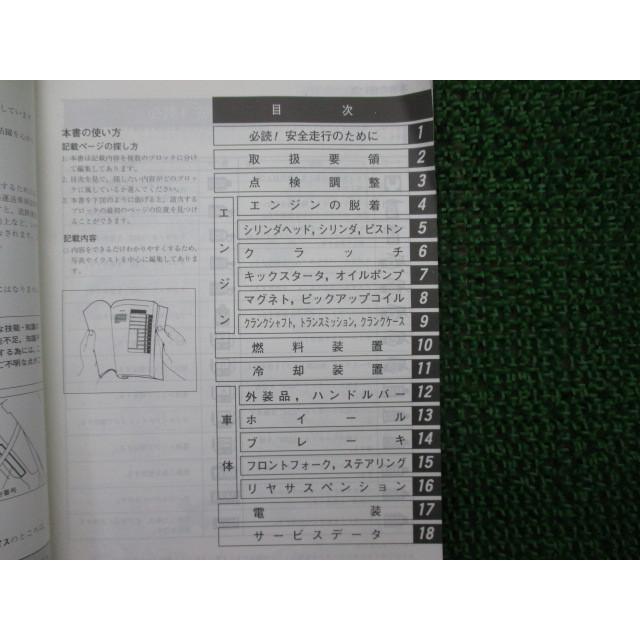 しています
活躍を心か
するために
目次
本書の使い方
記載ページの探し方
1. 本書は記載内容を複数のブロックに分け
て編集してあります。
2. 目次を見て、探したい内容がどのブロッ
クに属しているか選んでください。
3. 本書を下図のように曲げると、該当する
ブロックの最初のページの位置を見つけ
ることができます。
記載内容
○内容をできるだけわかりやすくするため、
写真やイラストを中心に編集してありま
す。
必読！安全走行のために 1
取扱要領 2
点検調整 3
エンジン
エンジンの脱着 4
シリンダヘッド, シリンダ, ピストン 5
クラッチ 6
キックスタータ, オイルポンプ 7
マグネト, ピックアップコイル 8
クランクシャフト, トランスミッション, クランクケース 9
燃料装置 10
冷却装置 11
車体
外装品, ハンドルバー 12
ホイール 13
ブレーキ 14
フロントフォーク, ステアリング 15
リヤサスペンション 16
電装 17
サービスデータ 18
にはなりませ
な技能・知識
を不足、知識
する為には、こ
ご不明な点が